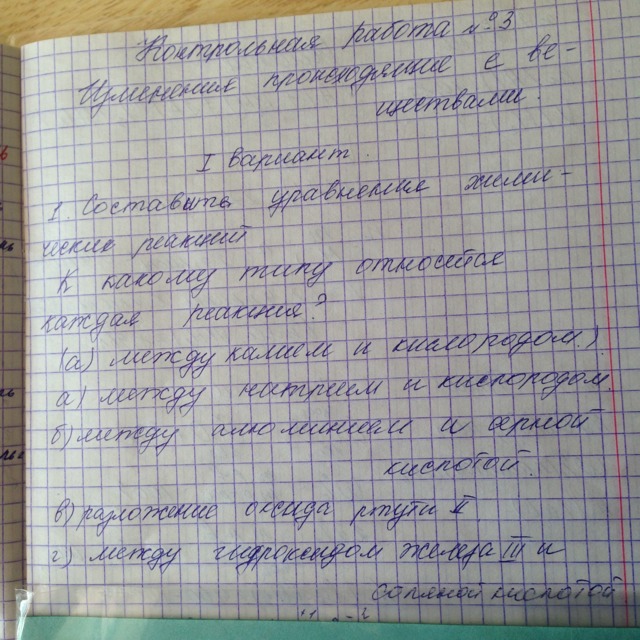 Контрольная работа №3
Изменения происходящие с ве-
ществами.
I вариант.
1. Составить уравнение хими-
ческие реакций
К какому типу относется
каждая реакция?
(а) между калием и кислородом.)
а) между натрием и кислородом
б) между алюминием и серной
кислотой.
в) разложение оксида ртути II
г) между гидроксидом железа III и
соляной кислотой